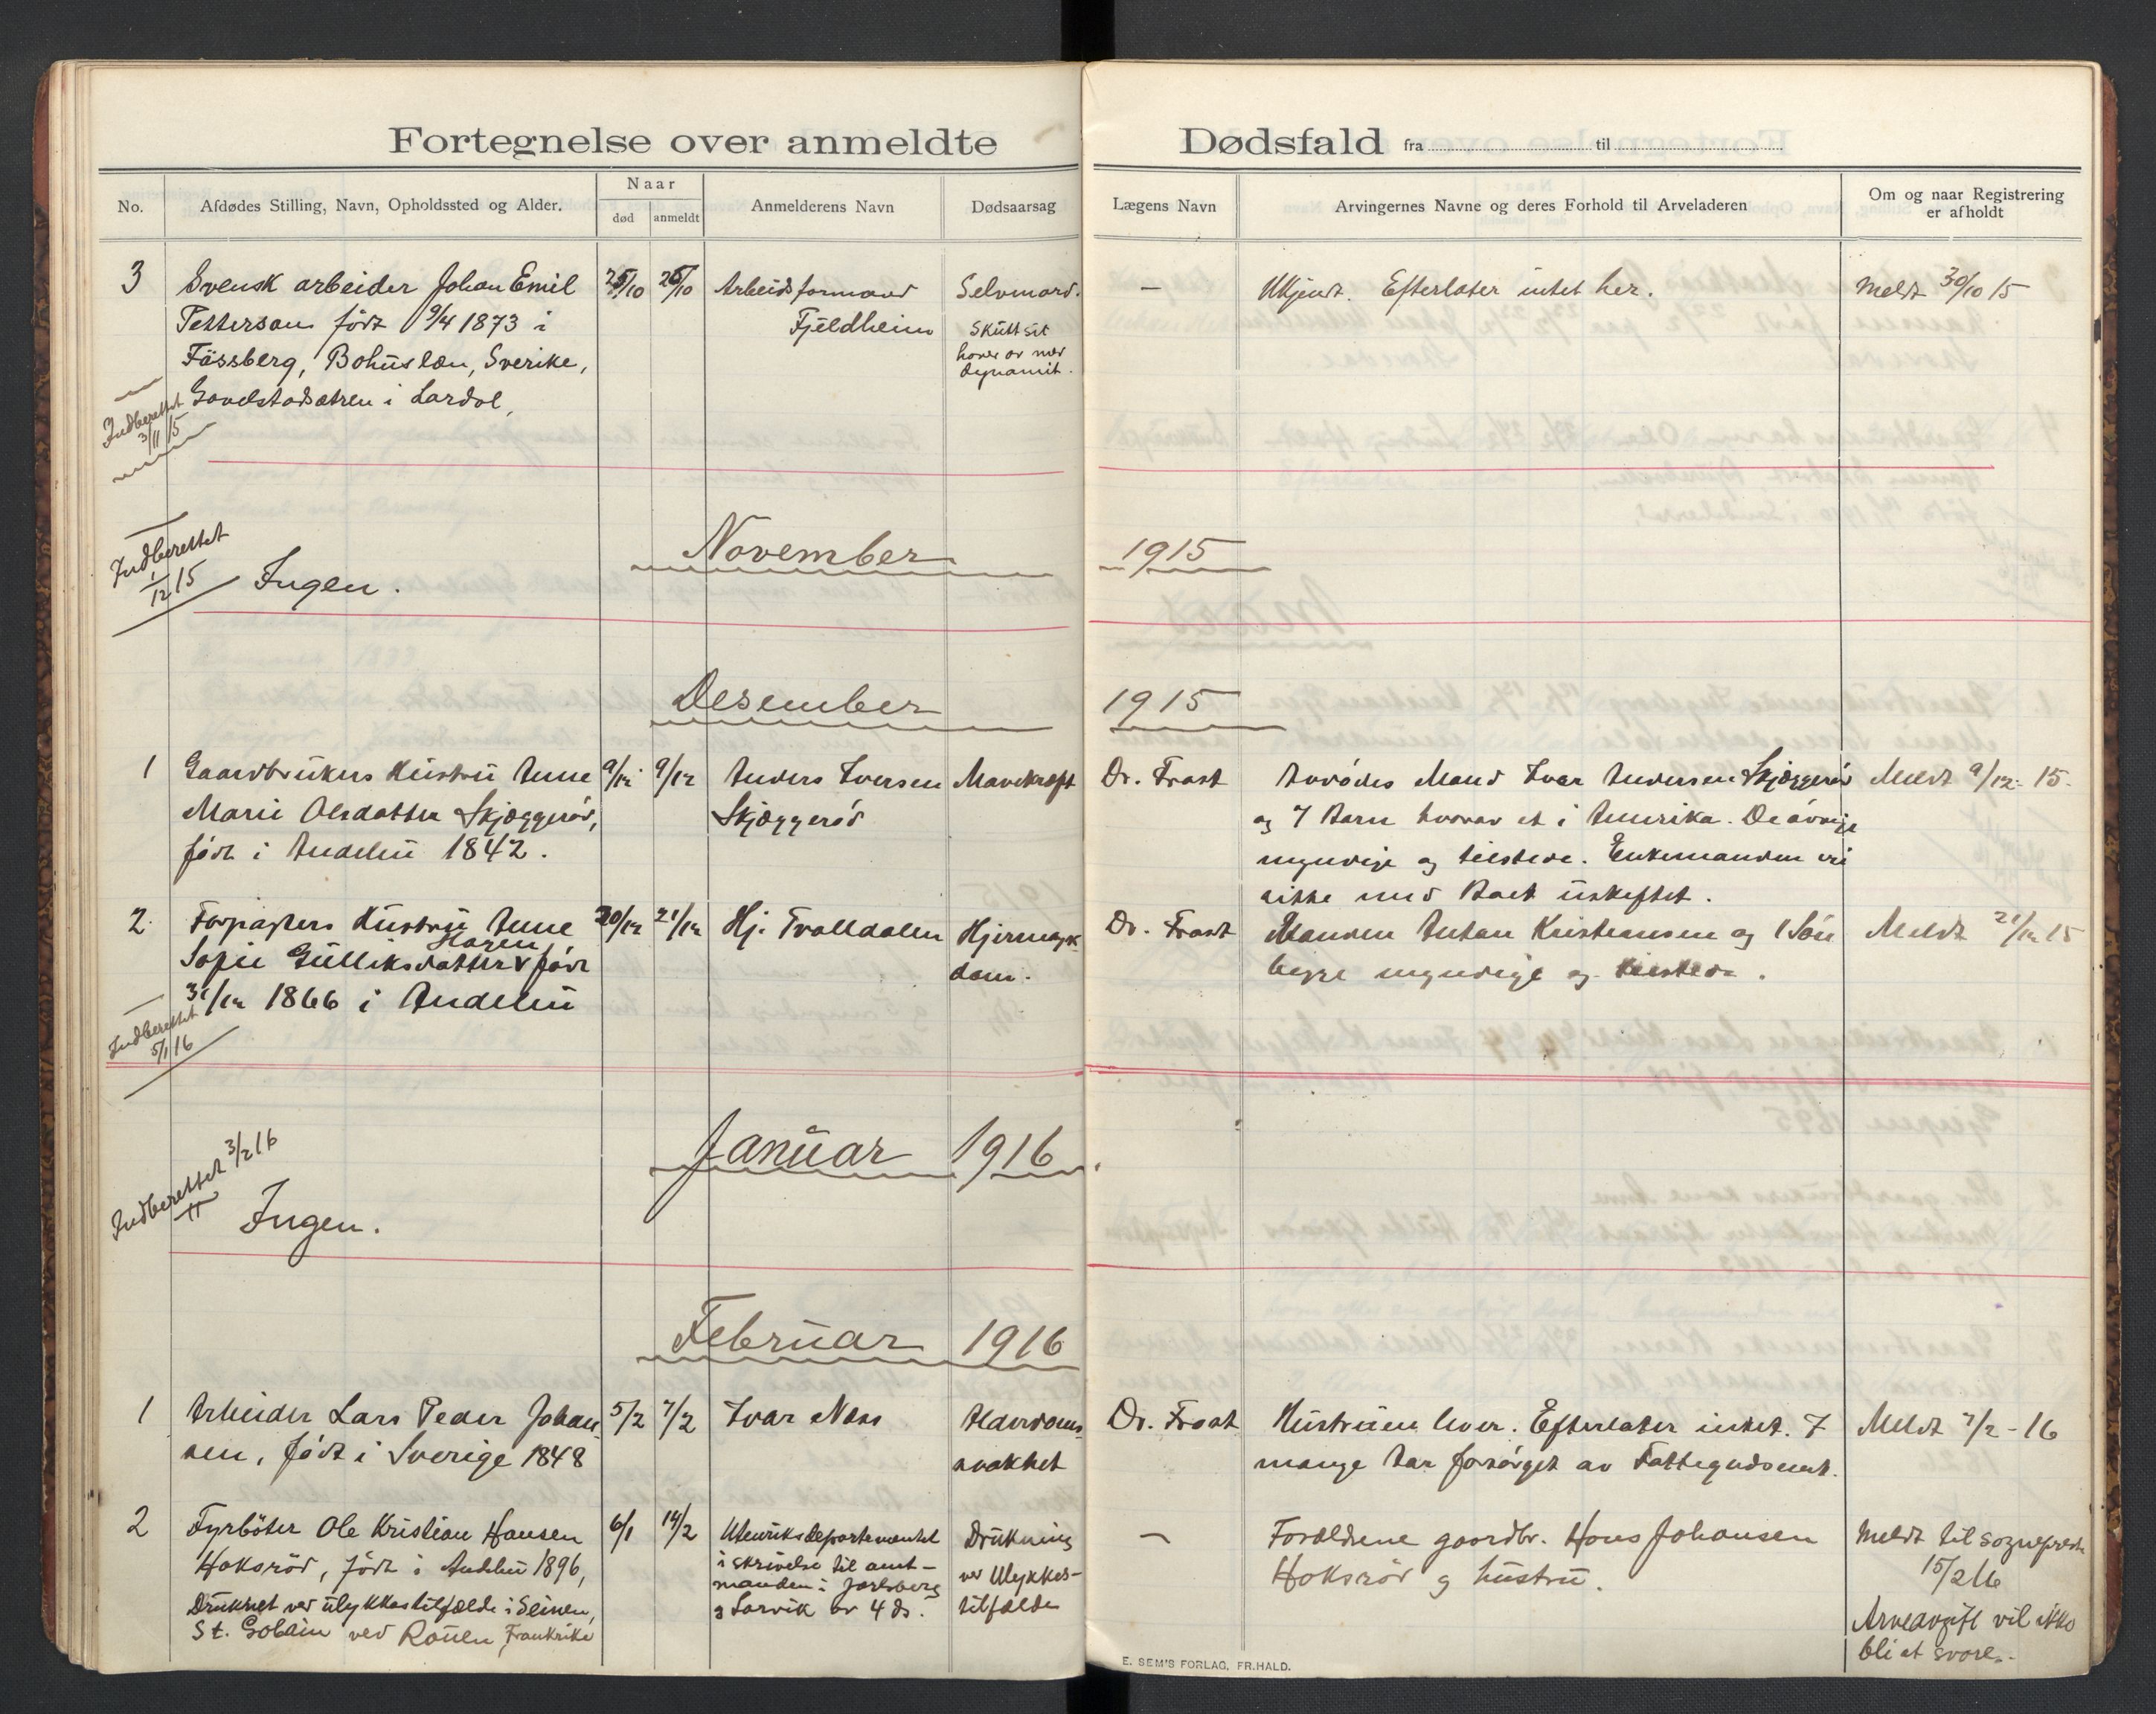 Fortegnelse over anmeldte Dødsfald fra til
No.
Afdødes Stilling, Navn, Opholdssted og Alder.
Naar
død
anmeldt
Anmelderens Navn
Dødsaarsag
Lægens Navn
Arvingernes Navne og deres Forhold til Arveladeren
Om og naar Registrering
er afholdt
3
Svensk arbeider Johan Emil
Pettersson født 9/4 1873 i
Fässberg, Bohuslæn, Sverike,
i Lardal,
Indberettet
3/11 15
25/10
26/10
Arbeidsformand
Fjeldheim
Selvmord.
Skutt sit
hode av med
dynamit.
—
Ukjendt. Efterlater intet her.
Meldt 30/10 15
November 1915
Indberettet
1/12 15
Ingen.
Desember 1915
1
Gaardbrukers Hustru Anne
Marie Olsdatter Skjæggerød,
født i Andebu 1842.
9/12
9/12
Anders Iversen
Skjæggerød
Mavekræft
Dr. Frost
Avdødes Mand Ivar Andersen Skjæggerød
og 7 Barn hvorav et i Amerika. De øvrige
myndige og tilstede. Enkemanden vil
sitte med Boet uskiftet.
Meldt 9/12 - 15.
2
Forpagters Hustru Anne
Sofie Gulliksdatter Hagen født
31/12 1866 i Andebu
Indberettet
5/1 16
20/12
21/12
Hj. Trolldalen
Hjernesyk
dom.
Dr. Frost
Manden Anton Kristiansen og 1 Søn
begge myndige og tilstede.
Meldt 21/12 15
Januar 1916
Indberettet 3/2 16
Ingen.
Februar 1916
1
Arbeider Lars Peder Johan
sen, født i Sverige 1848
5/2
7/2
Ivar Næss
Alderdoms
svakhet
Dr. Frost
Hustruen lever. Efterlater intet. I
mange Aar forsørget av Fattigvæsenet.
Meldt 7/2 - 16
2
Fyrbøter Ole Kristian Hansen
Hoksrød, født i Andebu 1896,
Druknet ved ulykkestilfælde i Seinen,
St. Gobain ved Rouen, Frankrike
6/1
14/2
Utenriksdepartementet
i skrivelse til amt-
manden i Jarlsberg
og Larvik av 4 ds.
Drukning
ved Ulykkes-
tilfælde
—
Forældrene gaardbr. Hans Johansen
Hoksrød og hustru.
Meldt til sogneprest
15/2 16
Arveavgift vil ikke
bli at svare.
E. SEM'S FORLAG, FR.HALD.